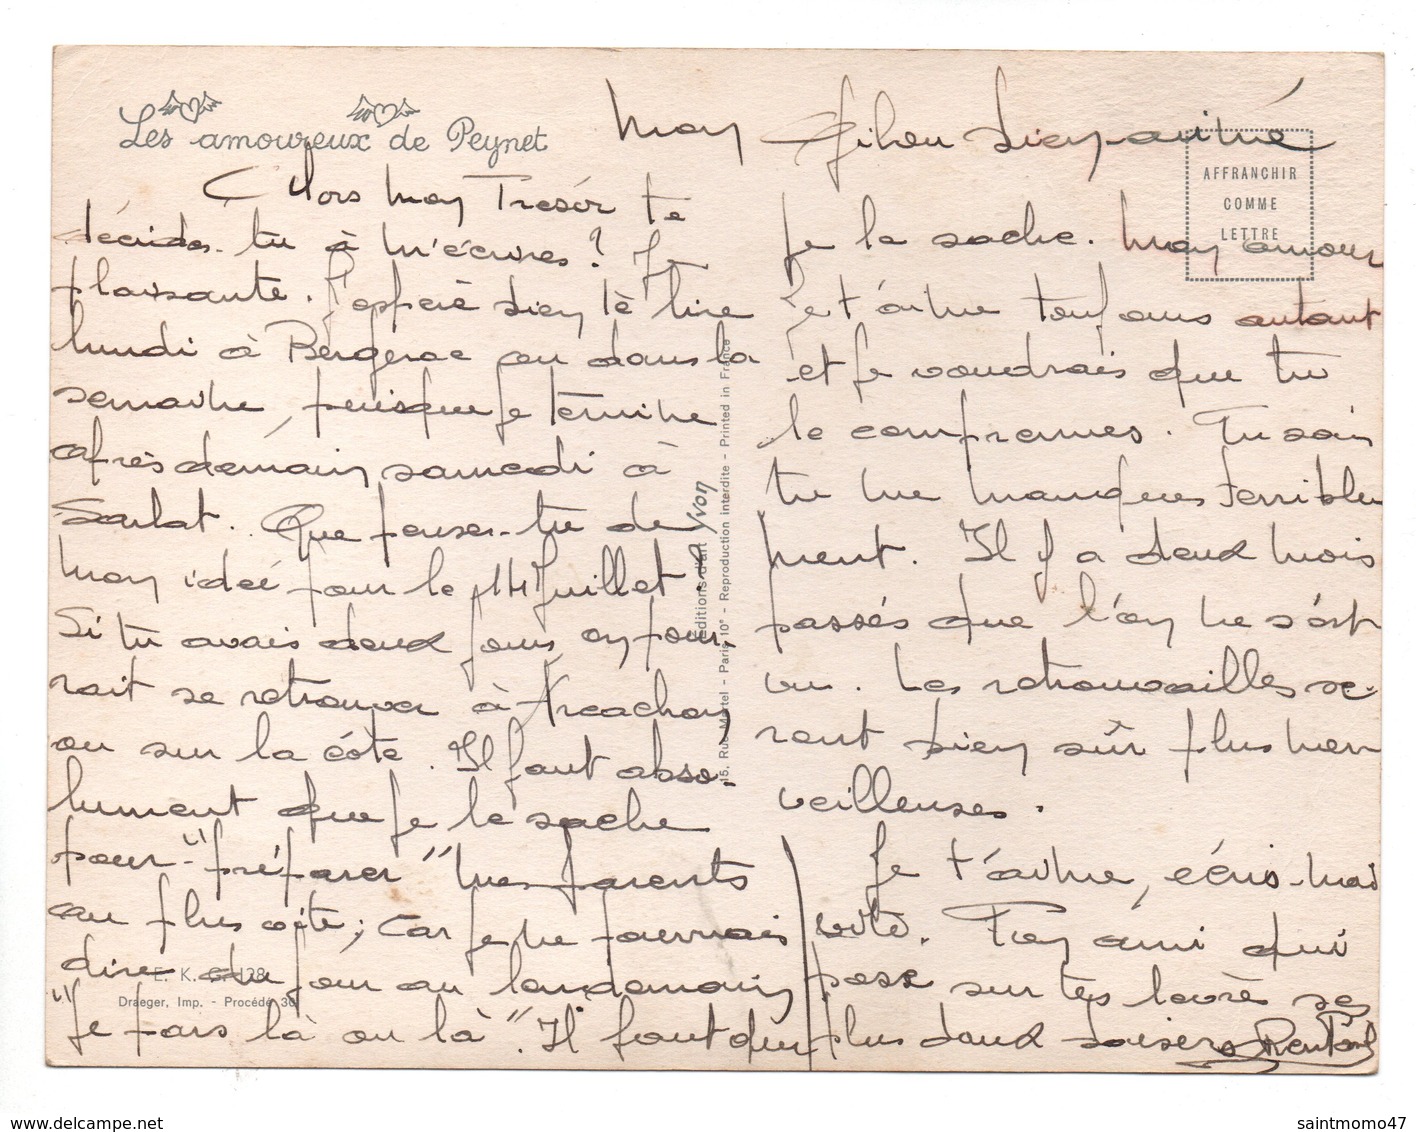 Les amoureux de Peynet
Alors mon Trésor te
décides-tu à m'écrire ? Je
plaisante. J'espère bien te lire
lundi à Bergerac ou dans la
semaine, puisque je termine
après demain samedi à
Sarlat. Que penses-tu de
mon idée pour le 14 Juillet.
Si tu avais deux jours on pour-
rait se retrouver à Arcachon
ou sur la côte. Il faut abso-
lument que je le sache
pour "préparer" mes parents
au plus vite ; car je ne pourrais
dire du jour au lendemain
"Je pars là ou là". Il faut que
E. K. 128
Draeger, Imp. - Procédé 301
Éditions d'art Yvon
15, Rue Martel - Paris 10e - Reproduction interdite - Printed in France
AFFRANCHIR
COMME
LETTRE
Mon bien-aimé
je le sache. Mon amour
je t'aime toujours autant
et je voudrais que tu
le comprennes. Tu sais
tu me manques terrible
ment. Il y a deux mois
passés que l'on ne s'est
vu. Les retrouvailles se-
ront bien sûr plus mer
veilleuses.
Je t'aime, écris-moi
vite. Ton ami qui
pose sur tes lèvres ses
plus doux baisers
saintmomo47
www.delcampe.net